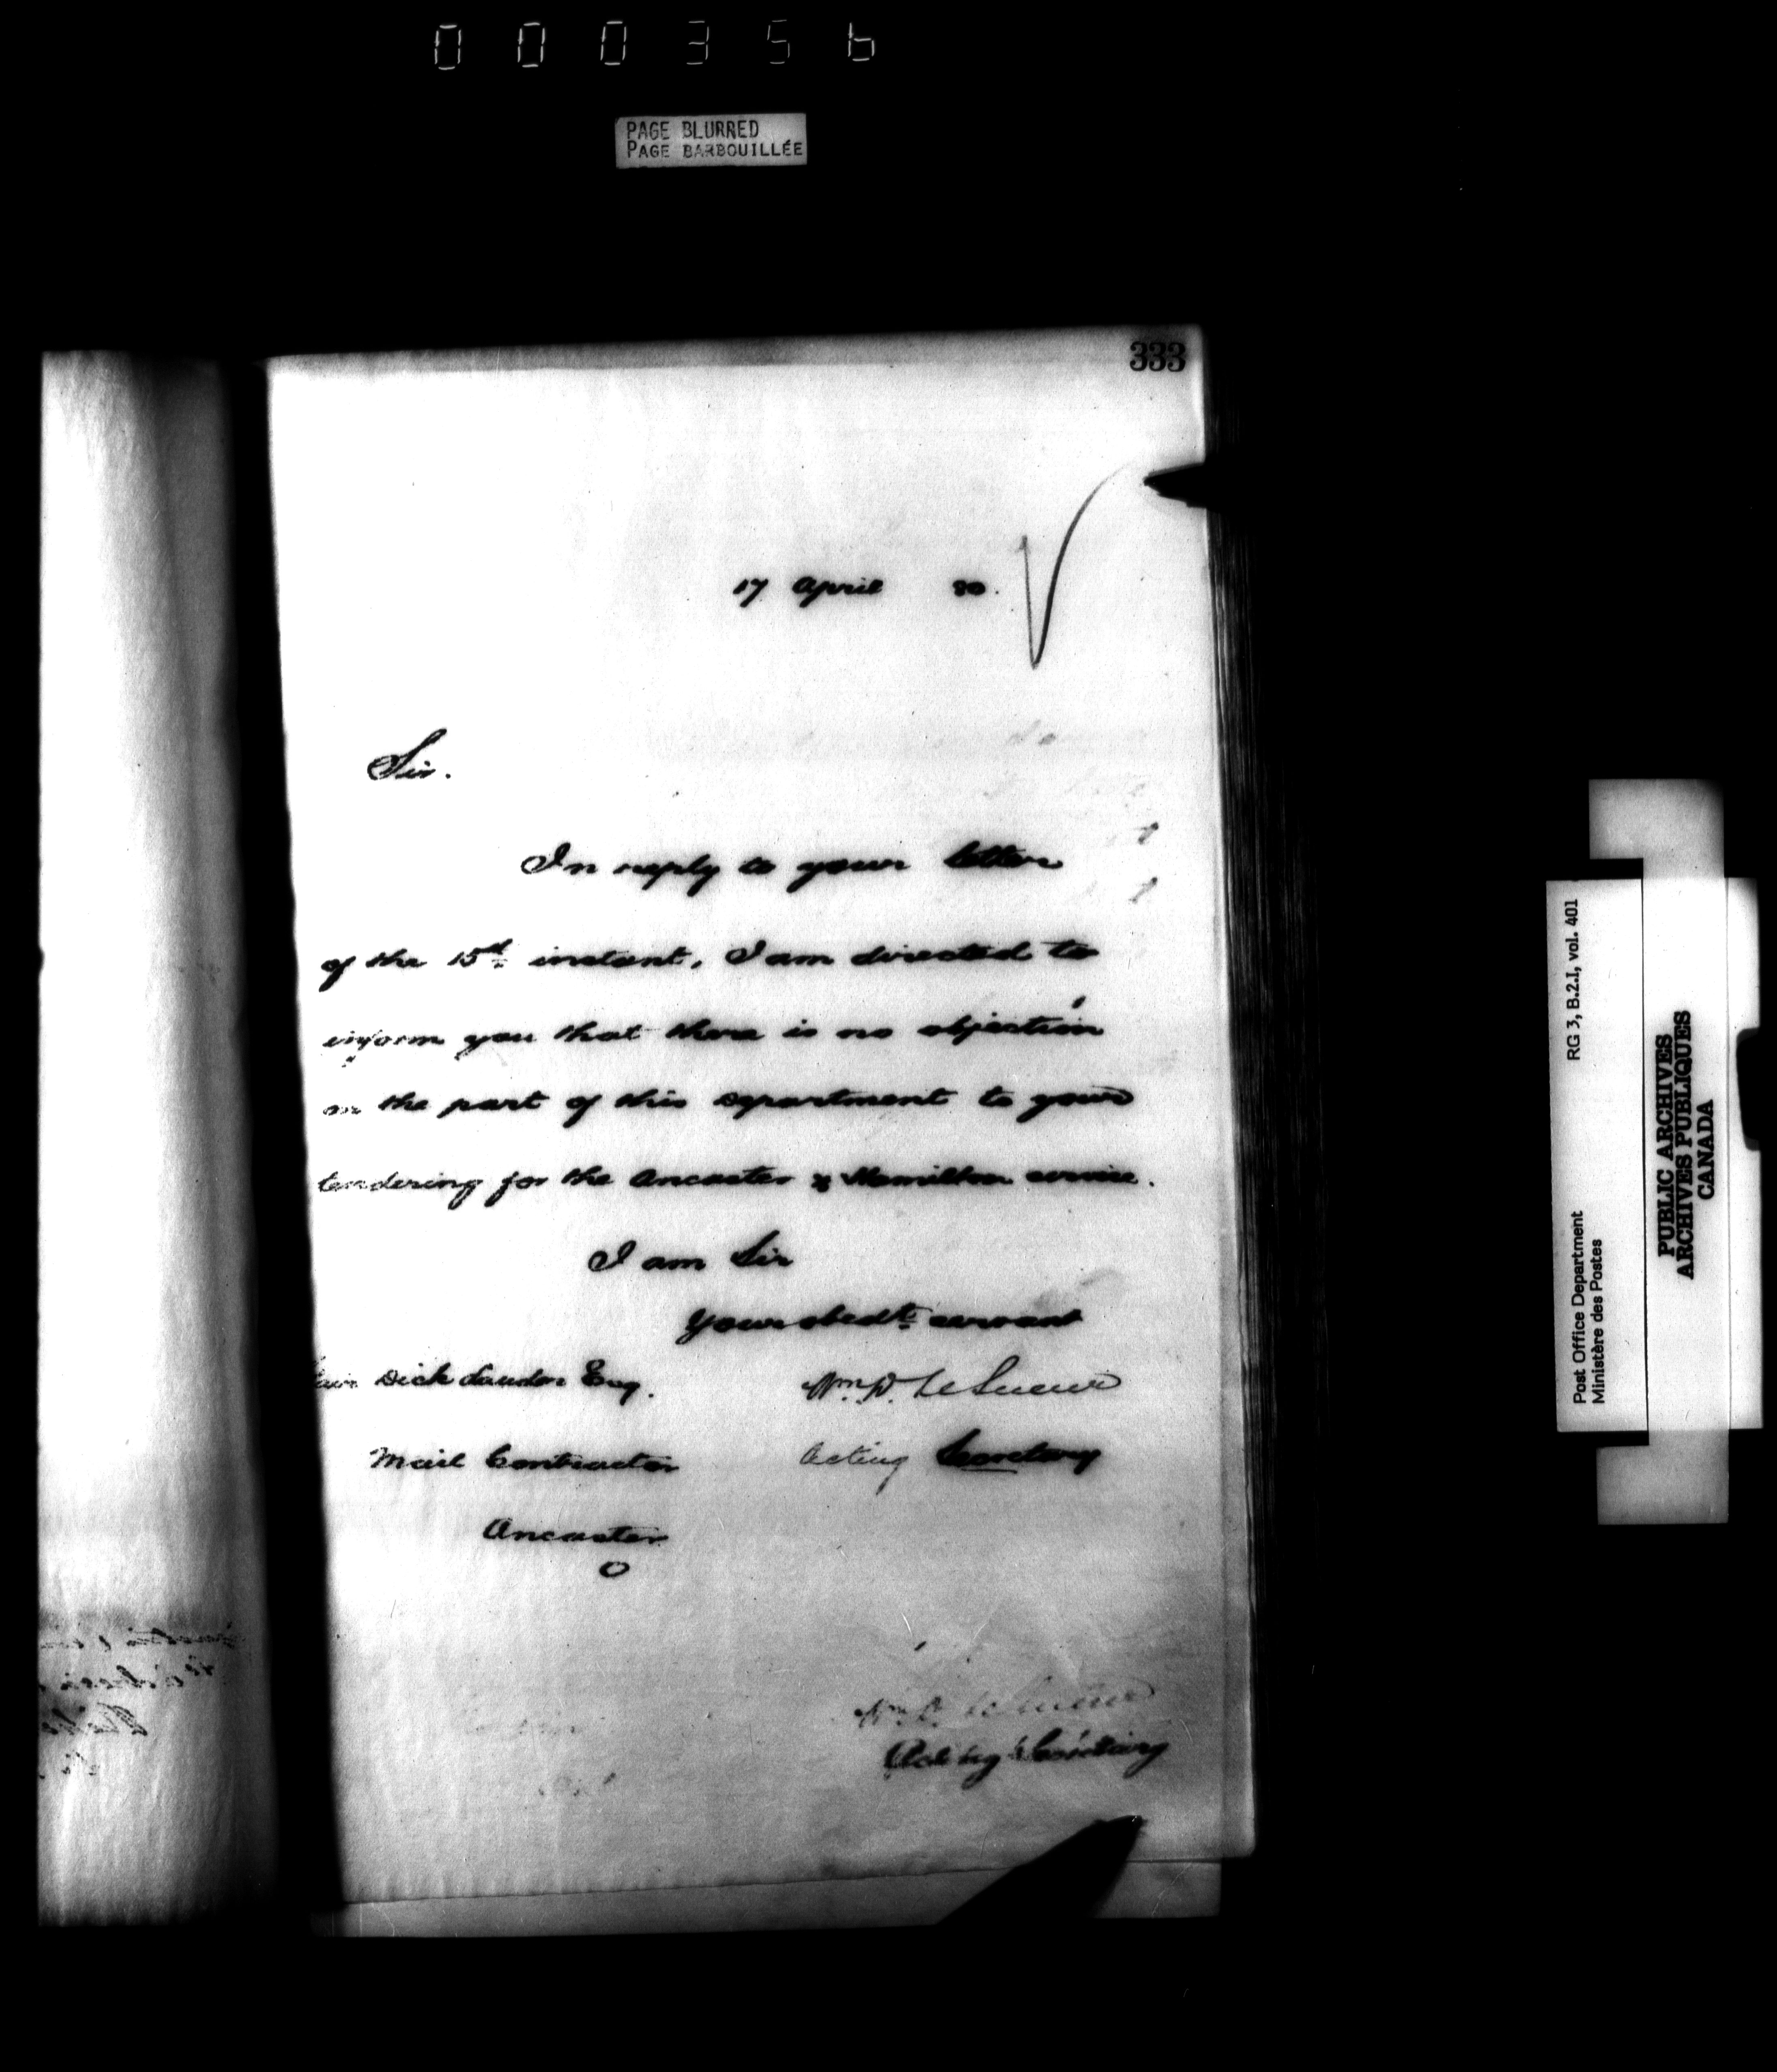 000356
PAGE BLURRED
PAGE BARBOUILLÉE
333
17 April 80.
Sir.
In reply to your letter
of the 15th instant, I am directed to
inform you that there is no objection
on the part of this department to your
tendering for the Ancaster & Hamilton service.
I am Sir
Your obedt servant
Dick Lauder Esq.
Wm. D. LeSueur
Mail Contractor
Acting Secretary
Ancaster
O
Wm. D. LeSueur
Acting Secretary
RG 3, B.2.I, vol. 401
Post Office Department
Ministère des Postes
PUBLIC ARCHIVES
ARCHIVES PUBLIQUES
CANADA